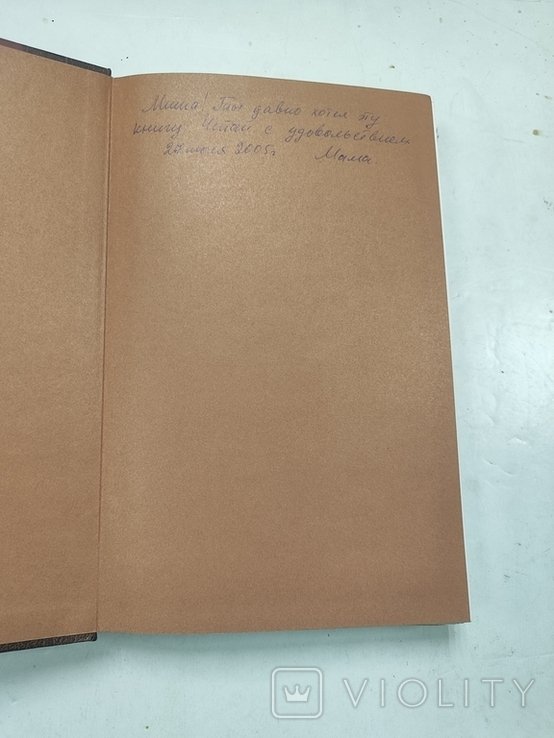 Миша! Ты давно хотел эту
книгу. Читай с удовольствием
27 июля 2005 г Мама.
VIOLITY